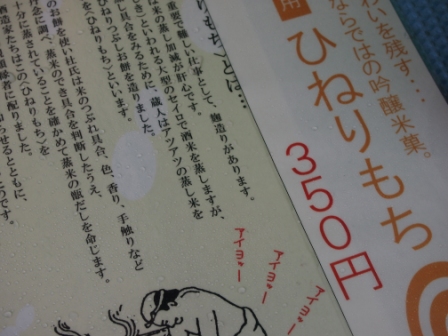 用
わいを残す…
ならではの吟醸米菓。
ひねりもち
350円
りもち〉とは…
重要で難しい仕事として、麹造りがあります。
は米の蒸し加減が肝心です。
しきといわれる大型のセイロで酒米を蒸しますが、
し具合をみるために、蔵人はアツアツの蒸し米を
ひねりつぶしお餅を造りました。
〈ひねりもち〉といいます。
のお餅を使い杜氏は米のつぶれ具合、色、香り、手触りなど
念に調べ、蒸米のでき具合を判断したうえ、
十分に蒸されていることを確かめて蒸米の甑だしを命じます。
酒造家たちはこの〈ひねりもち〉を
に配りました。
らせるとともに、
そうです。
アイヨー
アイヨー
アイヨー